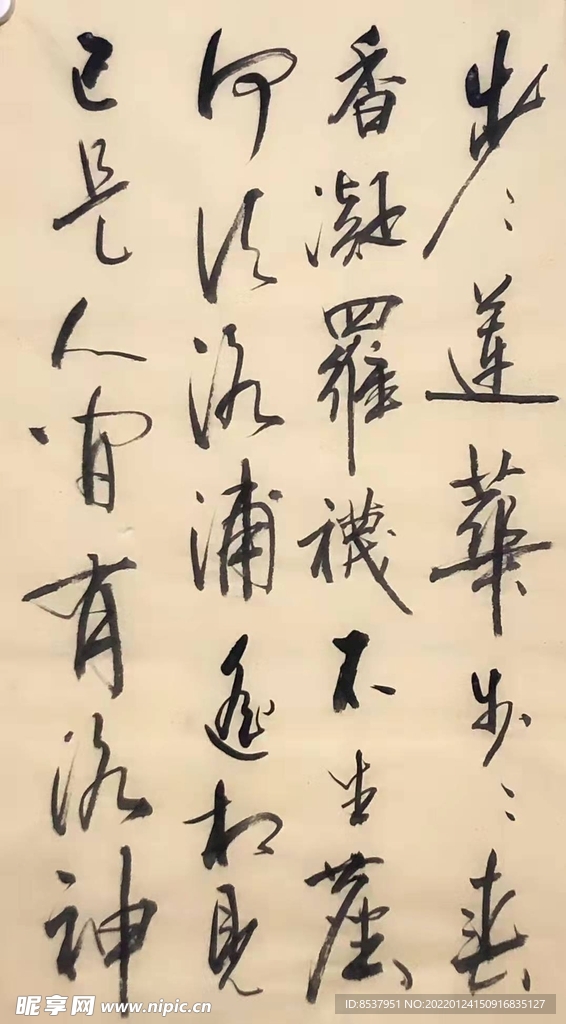 步〻蓮華步〻春
香凝羅襪不生塵
何須洛浦遙相見
已是人間有洛神
昵享网 www.nipic.cn
ID:8537951 NO:20220124150916835127